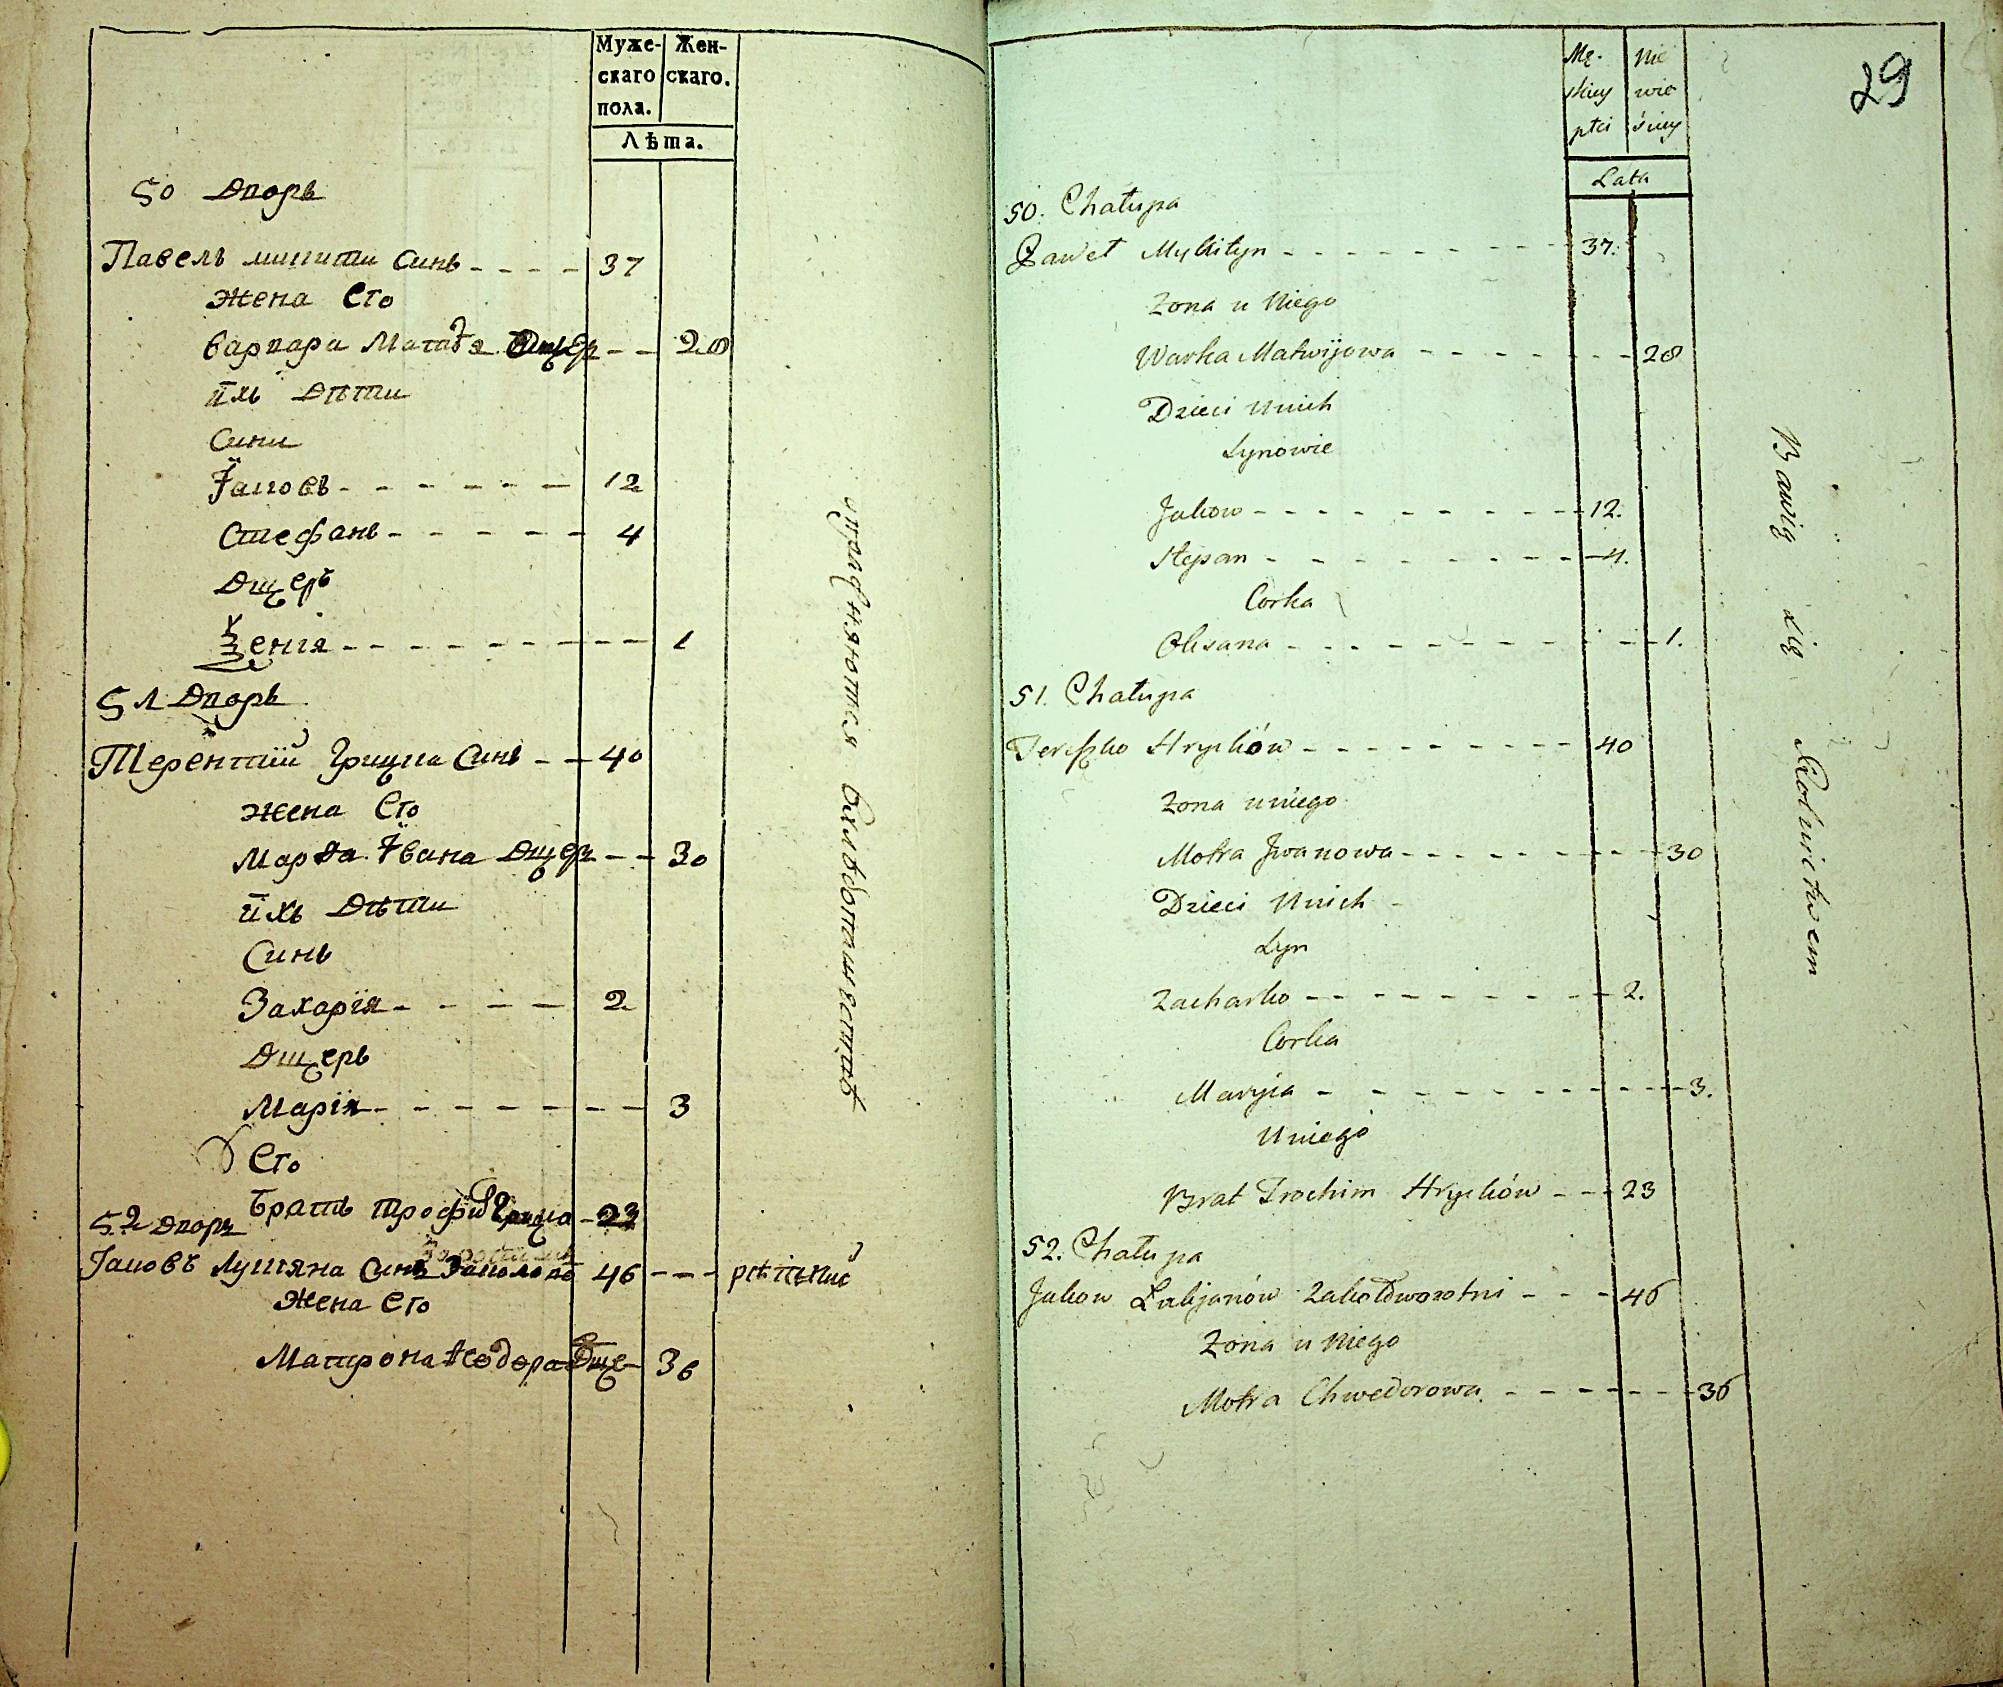 Муже-
скаго
пола.
Жен-
скаго.
Лѣта.
50 Дворъ
Павелъ микити Синъ - - - - 37
Жена Его
Варвара Матвѣя Дщерь - - 28
ихъ Дѣти
Сини
Іаковъ - - - - - - 12
Стефанъ - - - - - 4
Дщерь
Ѯенія - - - - - - - - - 1
51 Дворъ
Терентий Грицка Синъ - - 40
Жена Его
Марѳа Івана Дщерь - - 30
ихъ Дѣти
Синъ
Захарія - - - - 2
Дщерь
Марія - - - - - - - 3
Его
Братъ трофим Грицка - 23
52 Дворъ
Іаковъ Лукяна Синъ 46 - - -
Жена Его
Матрона Ѳеодора Дще- 36
упражняются вхлѣботшествѣ
29
Mę-
skiey
płci
Nie
wie
ściey
Lata
50. Chałupa
Paweł Mykityn - - - - - - - - - 37.
Zona u Niego
Warka Matwijowa - - - - - - - 28
Dzieci Unich
Synowie
Jakow - - - - - - - - - - 12.
Stepan - - - - - - - - - 4.
Corka
Oksana - - - - - - - - - - 1.
51. Chałupa
Tereszko Hrycków - - - - - - - - - 40
Zona u niego
Motra Jwanowa - - - - - - - - 30
Dzieci Unich -
Syn
Zacharko - - - - - - - - - 2.
Corka
Maryja - - - - - - - - - - 3.
U niego
Brat Trochim Hrycków - - - 23
52. Chałupa
Jakow Łukjanów Zakołoworotni - - - 46
Zona u Niego
Motra Chwedorowa - - - - - - - 36
Bawią się Rolnictwem